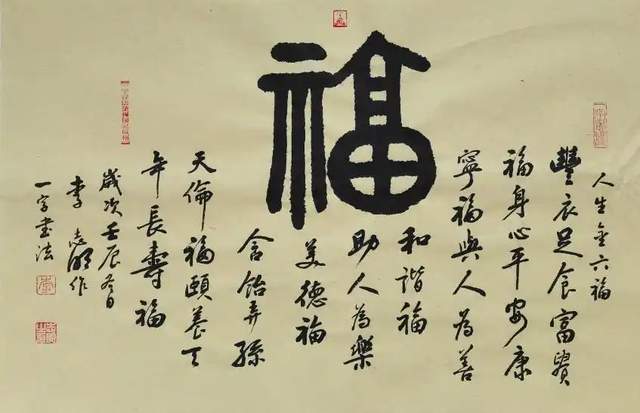 福
人生金六福
豐衣足食富貴
福身心平安康
寧福與人為善
和諧福
助人為樂
美德福
含飴弄孫
天倫福頤養天
年長壽福
歲次壬辰冬日
李志作
一字書法